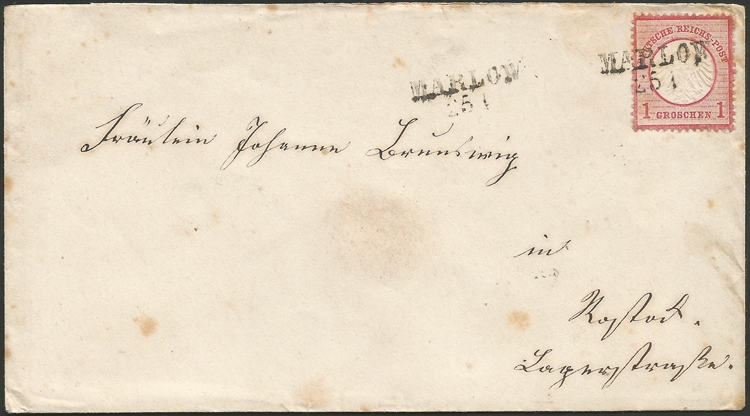 DEUTSCHE REICHS-POST
MARLOW
25 1
MARLOW
25 1
1 GROSCHEN 1
Fräulein Johanne Brunswig
in
Rostock.
Lagerstraße.